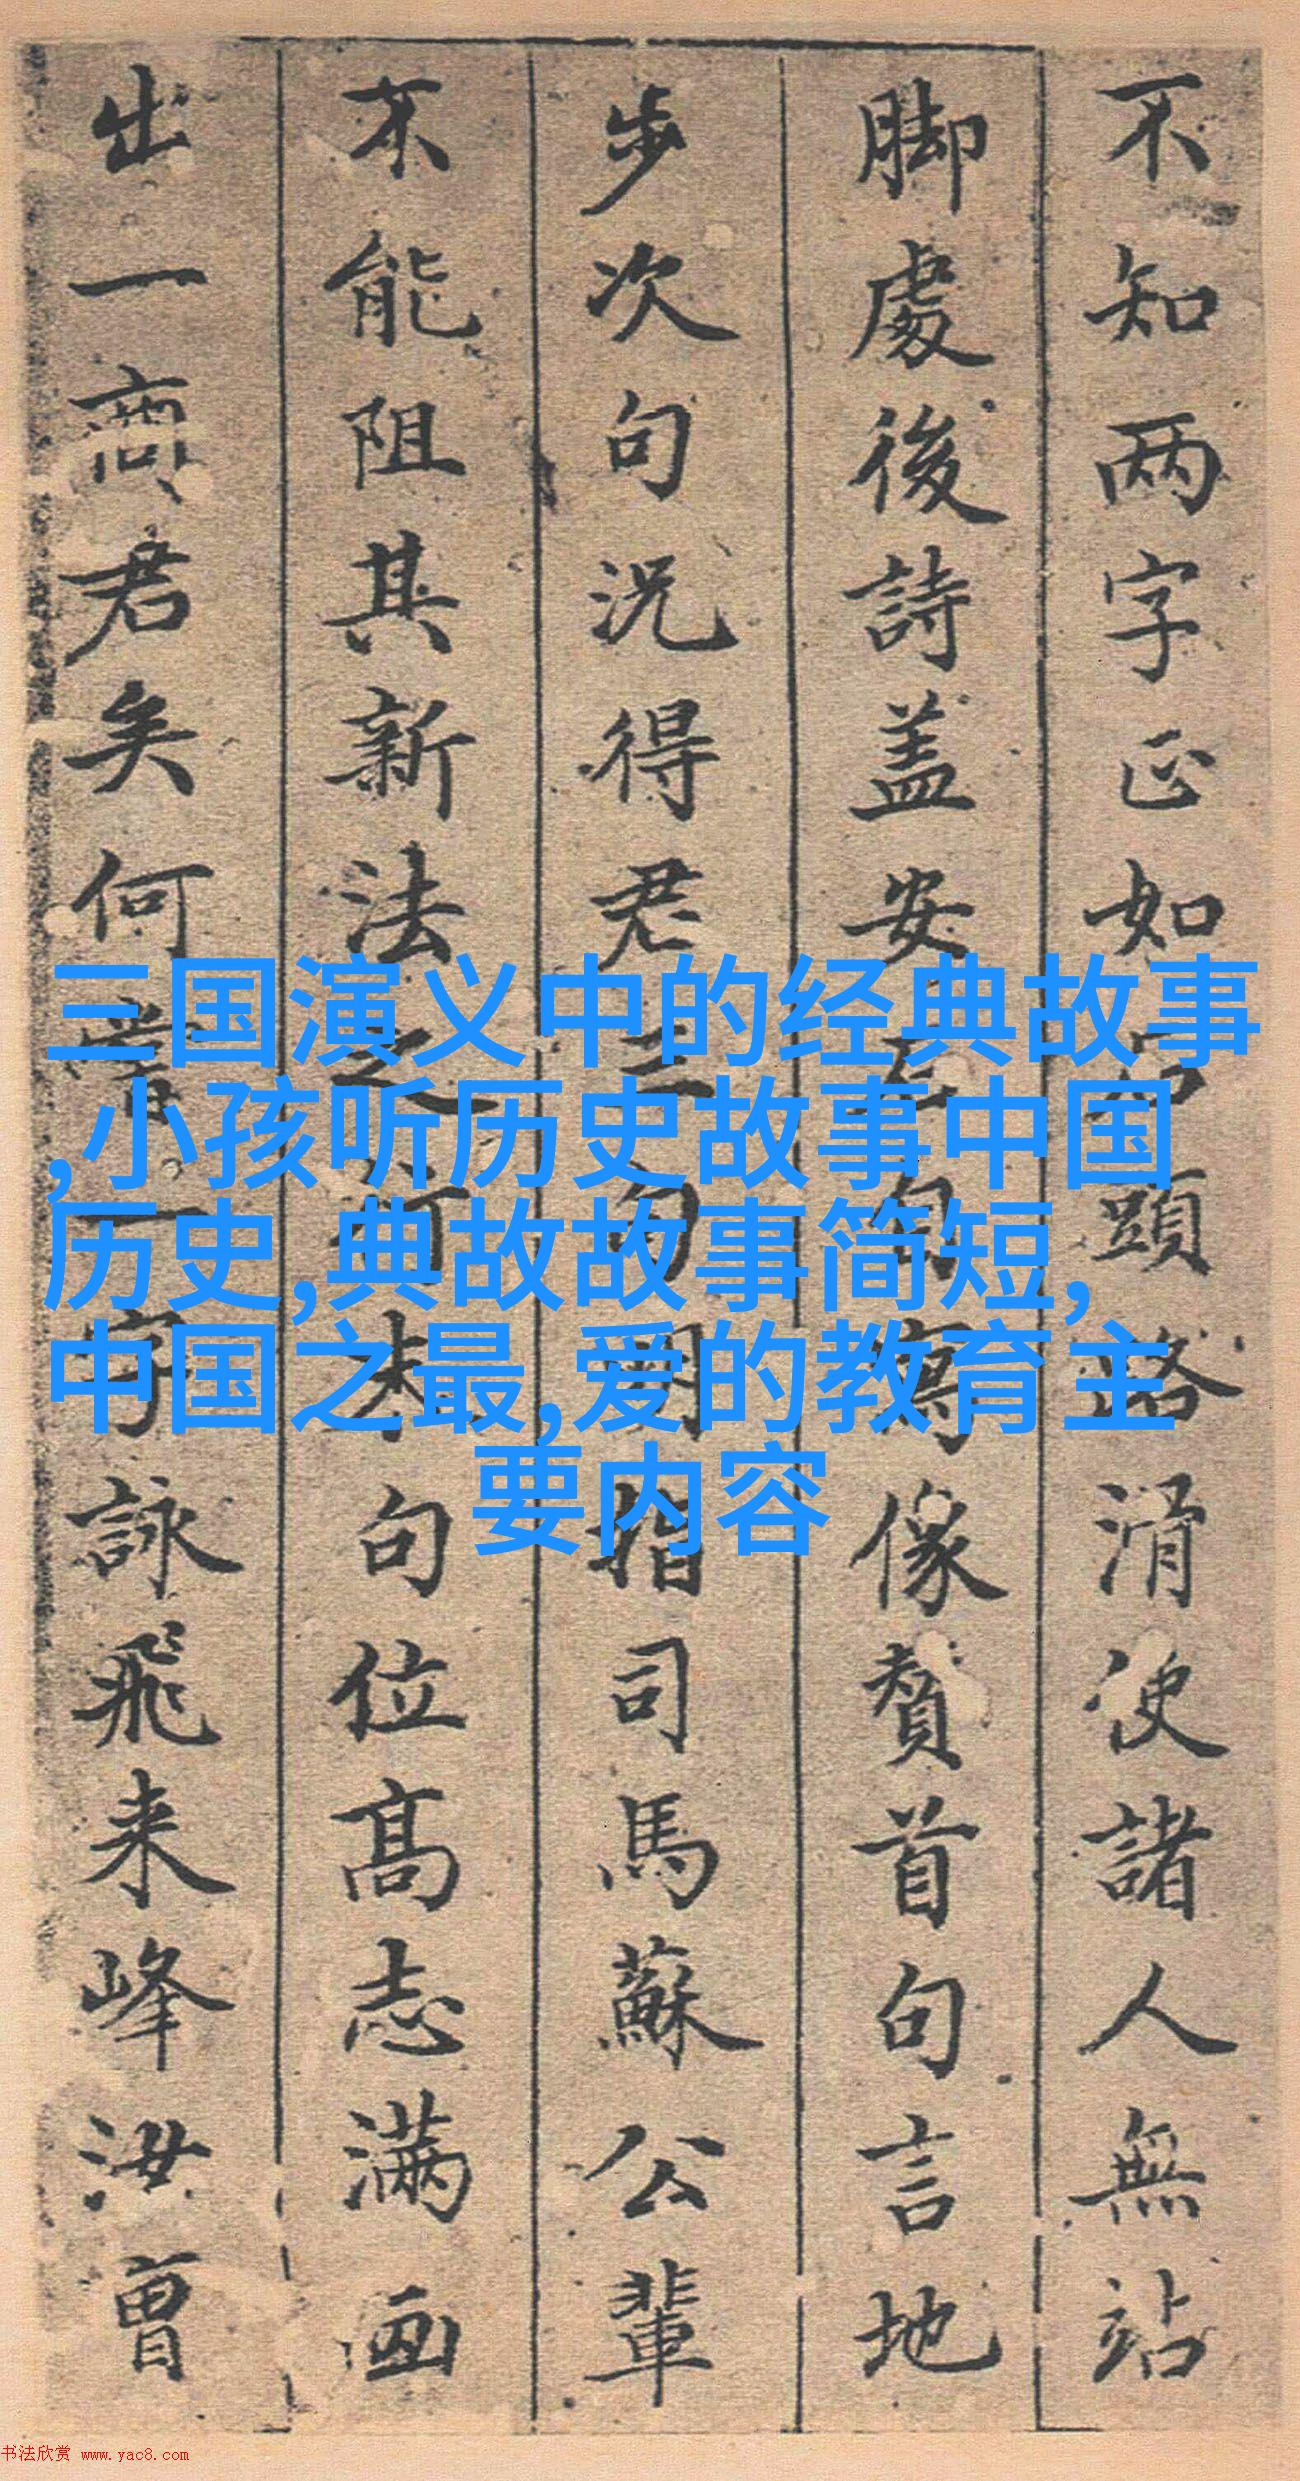 不知两字正如石頭路滑使諸人無站
脚處後詩盖安石自寫像贊首句言地
步次句况得君三句明指司馬蘇公輩
不能阻其新法之行末句位高志满画
出一商君矣何嘗一字詠飛来峰汝曾
三国演义中的经典故事
,小孩听历史故事中国
历史,典故故事简短,
中国之最,爱的教育主
要内容
书法欣赏 www.yac8.com